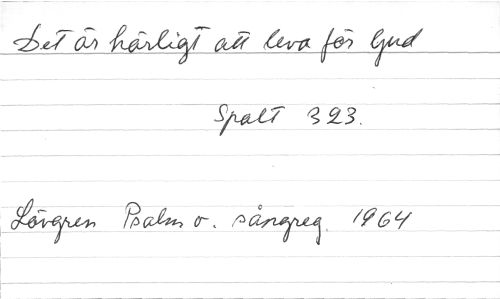 Det är härligt att leva för Gud
Spalt 323.
Lövgren Psalm o. sångreg. 1964